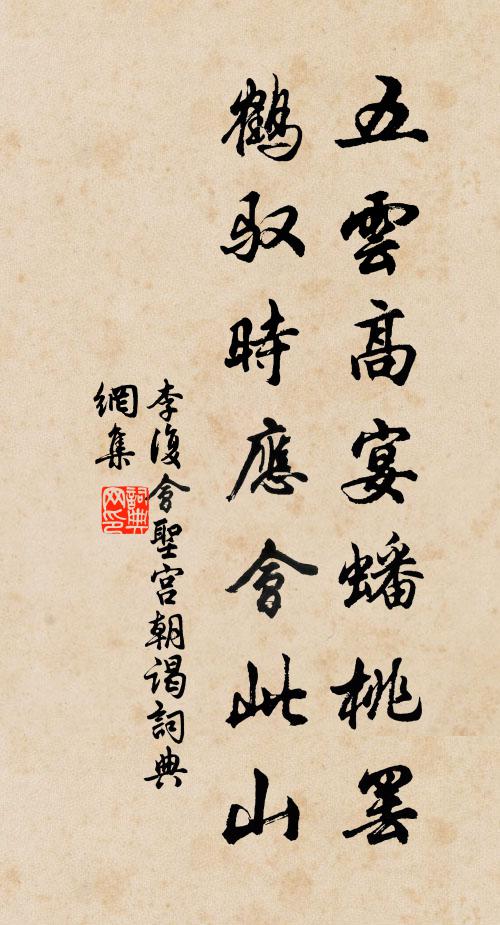 五雲高宴蟠桃罷
鶴馭時應會此山
李復會聖宮朝謁詞典
網集
詞典网印